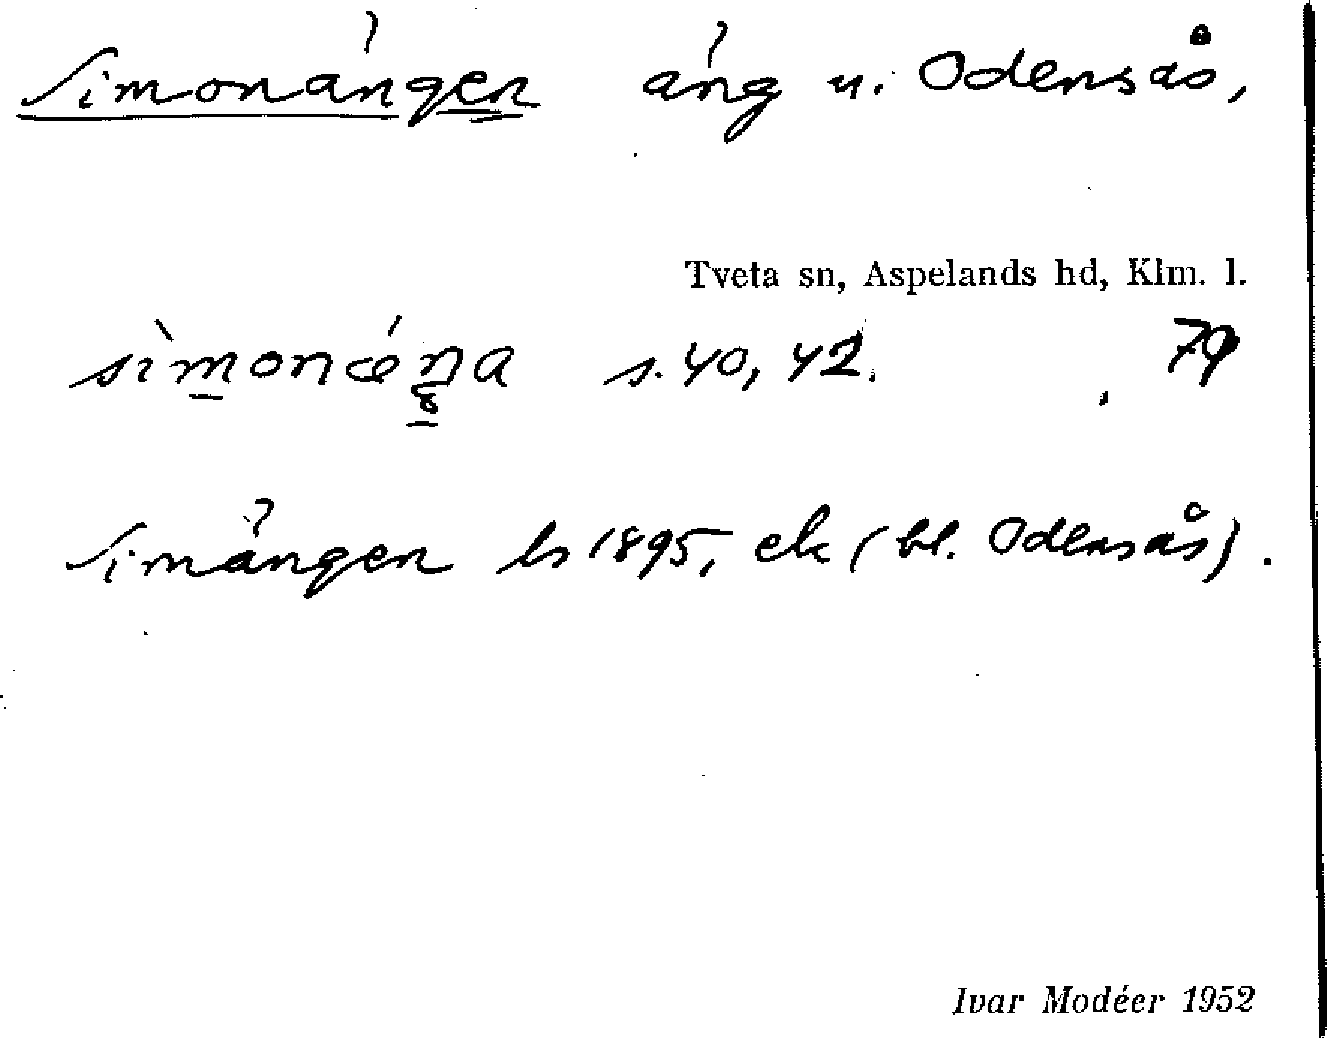 Simonängen äng u. Odensås,
Tveta sn, Aspelands hd, Klm. l.
s. 40, 42. 79
Simängen ls 1895, ek (bl. Odensås).
Ivar Modéer 1952